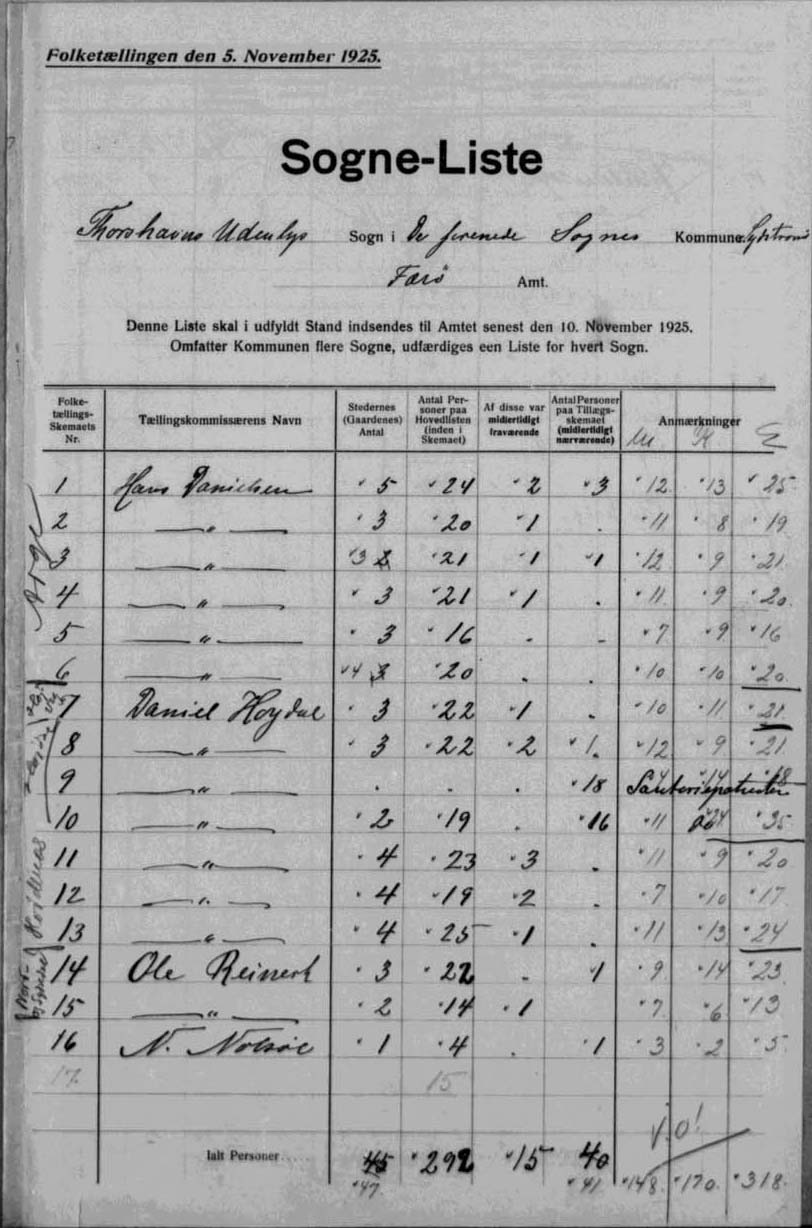 Folketællingen den 5. November 1925.
Sogne-Liste
Thorshavns Udenbys Sogn i De forenede Sognes Kommune. Sydstrømø
Færø Amt.
Denne Liste skal i udfyldt Stand indsendes til Amtet senest den 10. November 1925.
Omfatter Kommunen flere Sogne, udfærdiges een Liste for hvert Sogn.
Folketællings-Skemaets Nr. Tællingskommissærens Navn Stedernes (Gaardenes) Antal Antal Personer paa Hovedlisten (inden i Skemaet) Af disse var midlertidigt fraværende Antal Personer paa Tillægsskemaet (midlertidigt nærværende) Anmærkninger
M K
1 Hans Danielsen 5 24 2 3 12 13 25
2 — " — 3 20 1 . 11 8 19
3 — " — 3 21 1 1 12 9 21
4 — " — 3 21 1 . 11 9 20
5 — " — 3 16 - - 7 9 16
6 — " — 4 3 20 . . 10 10 20
7 Daniel Høydal 3 22 1 . 10 11 21
8 — " — 3 22 2 1. 12 9 21
9 — " — . . . 18 4 14 18
10 — " — 2 19 . 16 11 24 35
11 — " — 4 23 3 . 11 9 20
12 — " — 4 19 2 . 7 10 17
13 — " — 4 25 1 . 11 13 24
14 Ole Reinert 3 22 - 1 9 14 23
15 — " — 2 14 1 7 6 13
16 N. Nolsøe 1 4 . 1 3 2 5
17. 15
Arge
Hojdenas
i.o!
Ialt Personer..... 45 292 15 40
47 41 148. 170. 318.